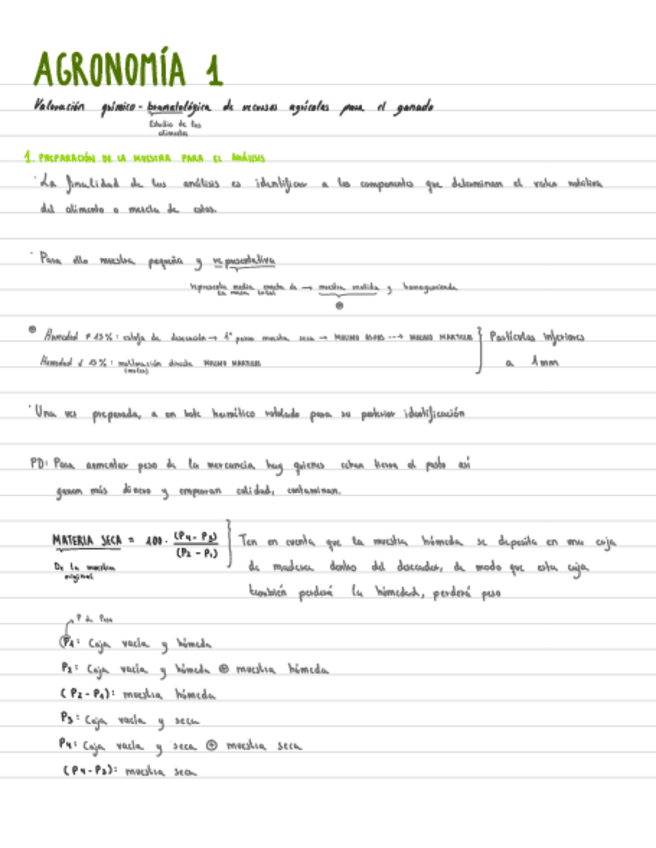 AGRONOMÍA 1
Valoración químico-bromatológica de recursos agrícolas para el ganado
Estudio de los
alimentos
1. PREPARACIÓN DE LA MUESTRA PARA EL ANÁLISIS
· La finalidad de los análisis es identificar a los componentes que determinan el valor nutritivo
del alimento o mezcla de estos.
· Para ello muestra pequeña y representativa
representa media exacta de → muestra molida y homogeneizada
la masa total
Humedad > 15%: estufa de desecación → 1º pesar muestra seca → MOLINO ASPAS --→ MOLINO MARTILLOS } Partículas inferiores
Humedad < 15%: molturación directa MOLINO MARTILLOS a 1mm
(moler)
· Una vez preparada, a un bote hermético rotulado para su posterior identificación
PD: Para aumentar peso de la mercancía hay quienes echan tierra al pasto así
ganan más dinero y empeoran calidad, contaminan.
MATERIA SECA = 100 · (P4 - P3) / (P2 - P1) } Ten en cuenta que la muestra húmeda se deposita en una caja
De la muestra
original
de madera dentro del desecador, de modo que esta caja
también perderá la humedad, perderá peso
P de Peso
P1: Caja vacía y húmeda
P2: Caja vacía y húmeda ⊕ muestra húmeda
(P2 - P1): muestra húmeda
P3: Caja vacía y seca
P4: Caja vacía y seca ⊕ muestra seca
(P4 - P3): muestra seca